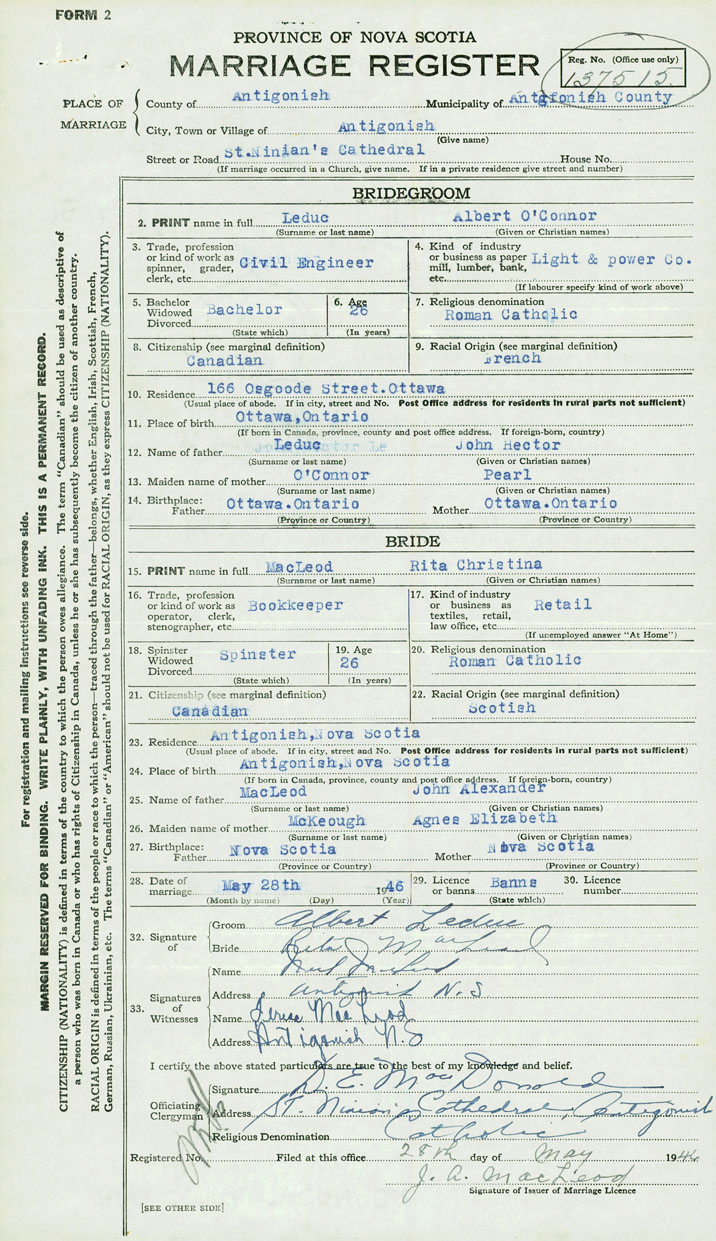 FORM 2
PROVINCE OF NOVA SCOTIA
MARRIAGE REGISTER
Reg. No. (Office use only)
137515
PLACE OF MARRIAGE
County of Antigonish Municipality of Antigonish County
City, Town or Village of Antigonish
(Give name)
Street or Road St.Ninian's Cathedral House No.
(If marriage occurred in a Church, give name. If in a private residence give street and number)
BRIDEGROOM
2. PRINT name in full Leduc Albert O'Connor
(Surname or last name) (Given or Christian names)
3. Trade, profession or kind of work as spinner, grader, clerk, etc. Civil Engineer
4. Kind of industry or business as paper mill, lumber, bank, etc. Light & power Co.
(If labourer specify kind of work above)
5. Bachelor Widowed Divorced Bachelor
(State which)
6. Age 26
(In years)
7. Religious denomination
Roman Catholic
8. Citizenship (see marginal definition)
Canadian
9. Racial Origin (see marginal definition)
French
10. Residence 166 Osgoode Street.Ottawa
(Usual place of abode. If in city, street and No. Post Office address for residents in rural parts not sufficient)
11. Place of birth Ottawa,Ontario
(If born in Canada, province, county and post office address. If foreign-born, country)
12. Name of father Leduc John Hector
(Surname or last name) (Given or Christian names)
13. Maiden name of mother O'Connor Pearl
(Surname or last name) (Given or Christian names)
14. Birthplace: Father Ottawa.Ontario Mother Ottawa.Ontario
(Province or Country) (Province or Country)
BRIDE
15. PRINT name in full MacLeod Rita Christina
(Surname or last name) (Given or Christian names)
16. Trade, profession or kind of work as operator, clerk, stenographer, etc. Bookkeeper
17. Kind of industry or business as textiles, retail, law office, etc. Retail
(If unemployed answer "At Home")
18. Spinster Widowed Divorced Spinster
(State which)
19. Age 26
(In years)
20. Religious denomination
Roman Catholic
21. Citizenship (see marginal definition)
Canadian
22. Racial Origin (see marginal definition)
Scotish
23. Residence Antigonish,Nova Scotia
(Usual place of abode. If in city, street and No. Post Office address for residents in rural parts not sufficient)
24. Place of birth Antigonish,Nova Scotia
(If born in Canada, province, county and post office address. If foreign-born, country)
25. Name of father MacLeod John Alexander
(Surname or last name) (Given or Christian names)
26. Maiden name of mother McKeough Agnes Elizabeth
(Surname or last name) (Given or Christian names)
27. Birthplace: Father Nova Scotia Mother Nova Scotia
(Province or Country) (Province or Country)
28. Date of marriage May 28th 1946
(Month by name) (Day) (Year)
29. Licence or banns Banns
(State which)
30. Licence number
32. Signature of
Groom Albert Leduc
Bride Rita MacLeod
33. Signatures of Witnesses
Name
Address Antigonish N.S
Name MacLeod
Address Antigonish N.S
I certify the above stated particulars are true to the best of my knowledge and belief.
Officiating Clergyman
Signature D. E. MacDonald
Address St. Ninian's Cathedral, Antigonish
Religious Denomination Catholic
Registered No. Filed at this office 28th day of May 1946
J. A. MacLeod
Signature of Issuer of Marriage Licence
[SEE OTHER SIDE]
For registration and mailing instructions see reverse side.
MARGIN RESERVED FOR BINDING. WRITE PLAINLY, WITH UNFADING INK. THIS IS A PERMANENT RECORD.
CITIZENSHIP (NATIONALITY) is defined in terms of the country to which the person owes allegiance. The term "Canadian" should be used as descriptive of
a person who was born in Canada or who has rights of Citizenship in Canada, unless he or she has subsequently become the citizen of another country.
RACIAL ORIGIN is defined in terms of the people or race to which the person—traced through the father—belongs, whether English, Irish, Scottish, French,
German, Russian, Ukrainian, etc. The terms "Canadian" or "American" should not be used for RACIAL ORIGIN, as they express CITIZENSHIP (NATIONALITY).